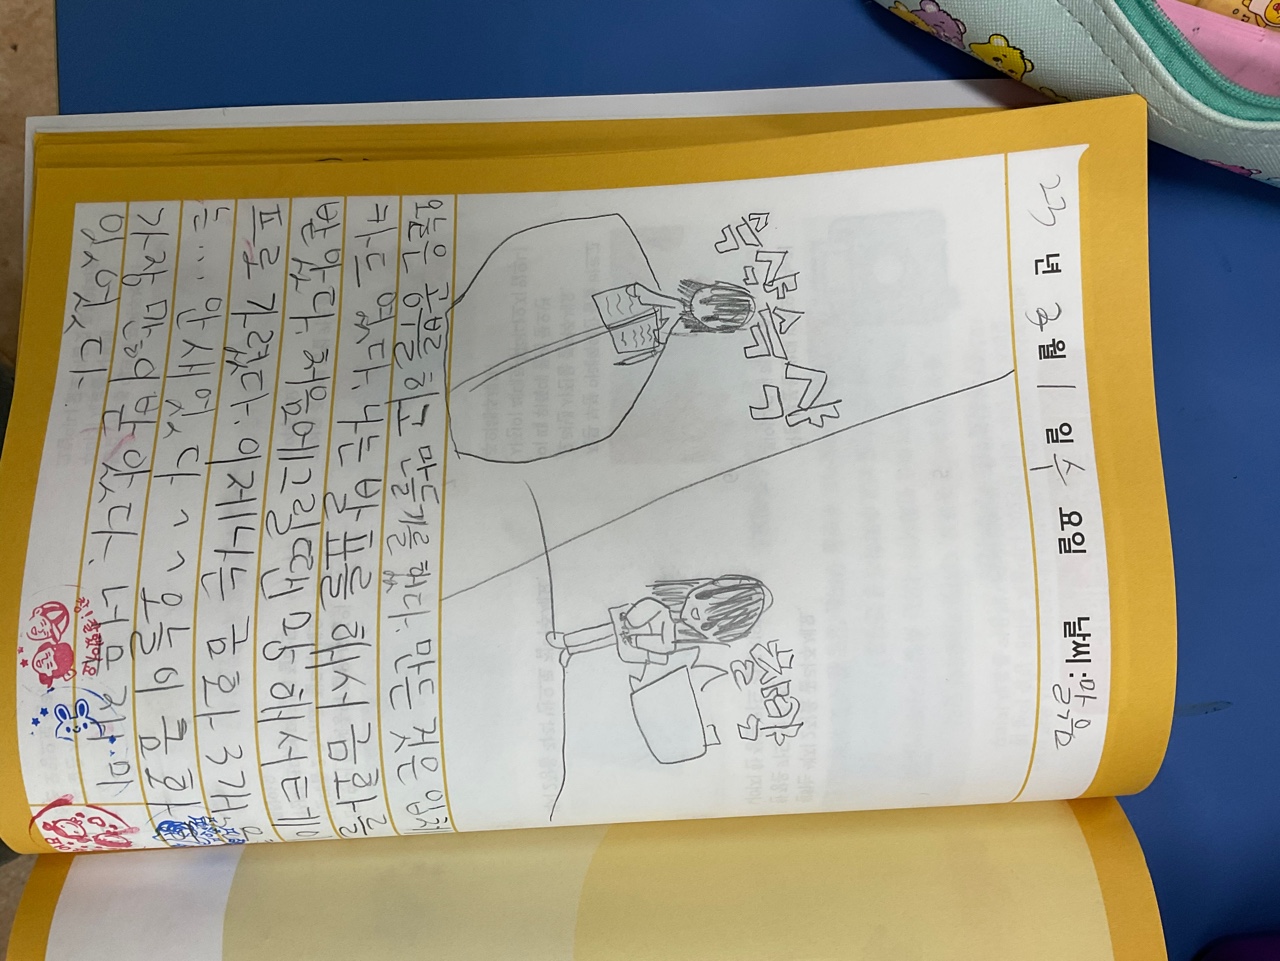 23 년 3 월 1 일 수 요일 날씨 : 맑음
슥삭슥삭
촬막
오늘은 공부를 하고 만들기를 했다. 만든 것은 입체
카드 였다. 나는 발표를 해서 금화를
받았다. 처음에 그릴땐 망해서 테이
프로 가렸다. 이제 나는 금화 3개,
는... 안 새었다 ^^ 오늘이 금화
가장 많이 받았다. 너무 재미
있었다.
참! 잘했어요